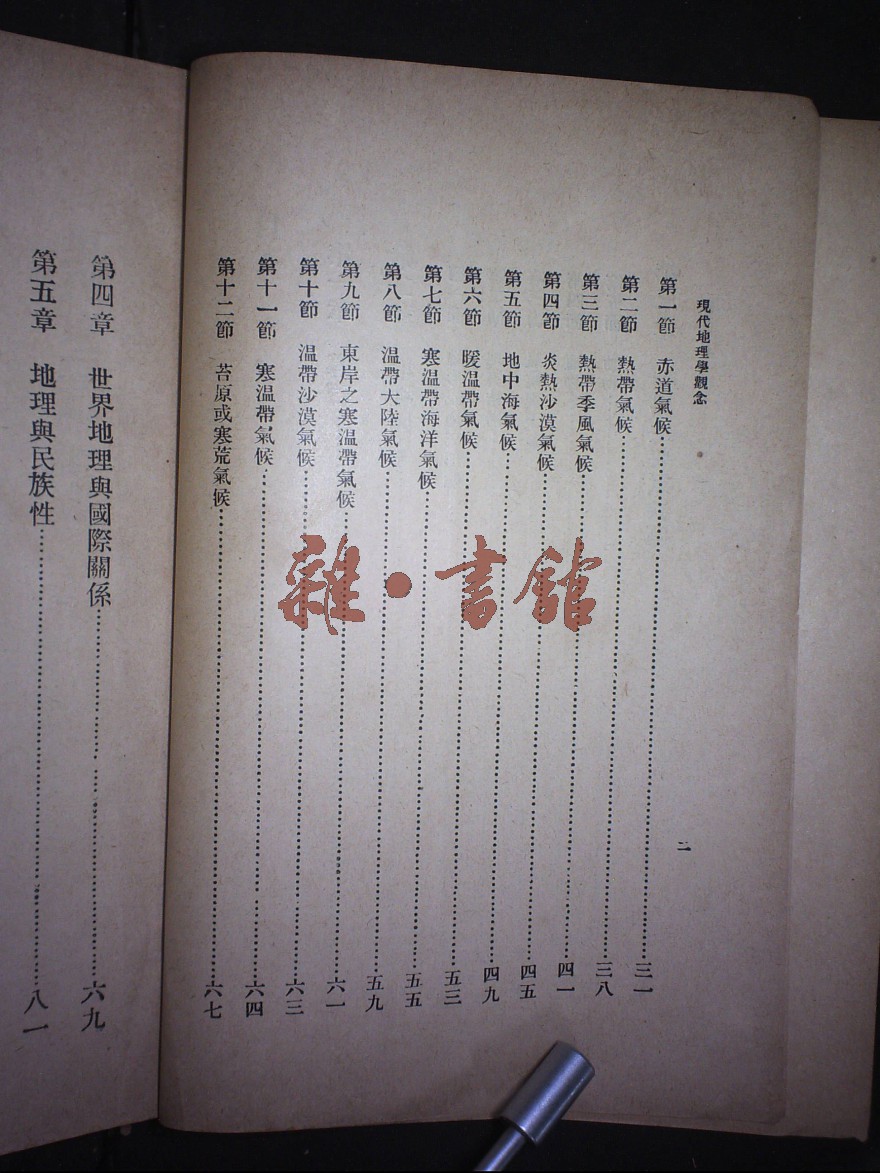 現代地理學觀念
二
第一節 赤道氣候……三一
第二節 熱帶氣候……三八
第三節 熱帶季風氣候……四一
第四節 炎熱沙漠氣候……四五
第五節 地中海氣候……四九
第六節 暖溫帶氣候……五三
第七節 寒溫帶海洋氣候……五五
第八節 溫帶大陸氣候……五九
第九節 東岸之寒溫帶氣候……六一
第十節 溫帶沙漠氣候……六三
第十一節 寒溫帶氣候……六四
第十二節 苔原或寒荒氣候……六七
第四章 世界地理與國際關係……六九
第五章 地理與民族性……八一
雜·書館